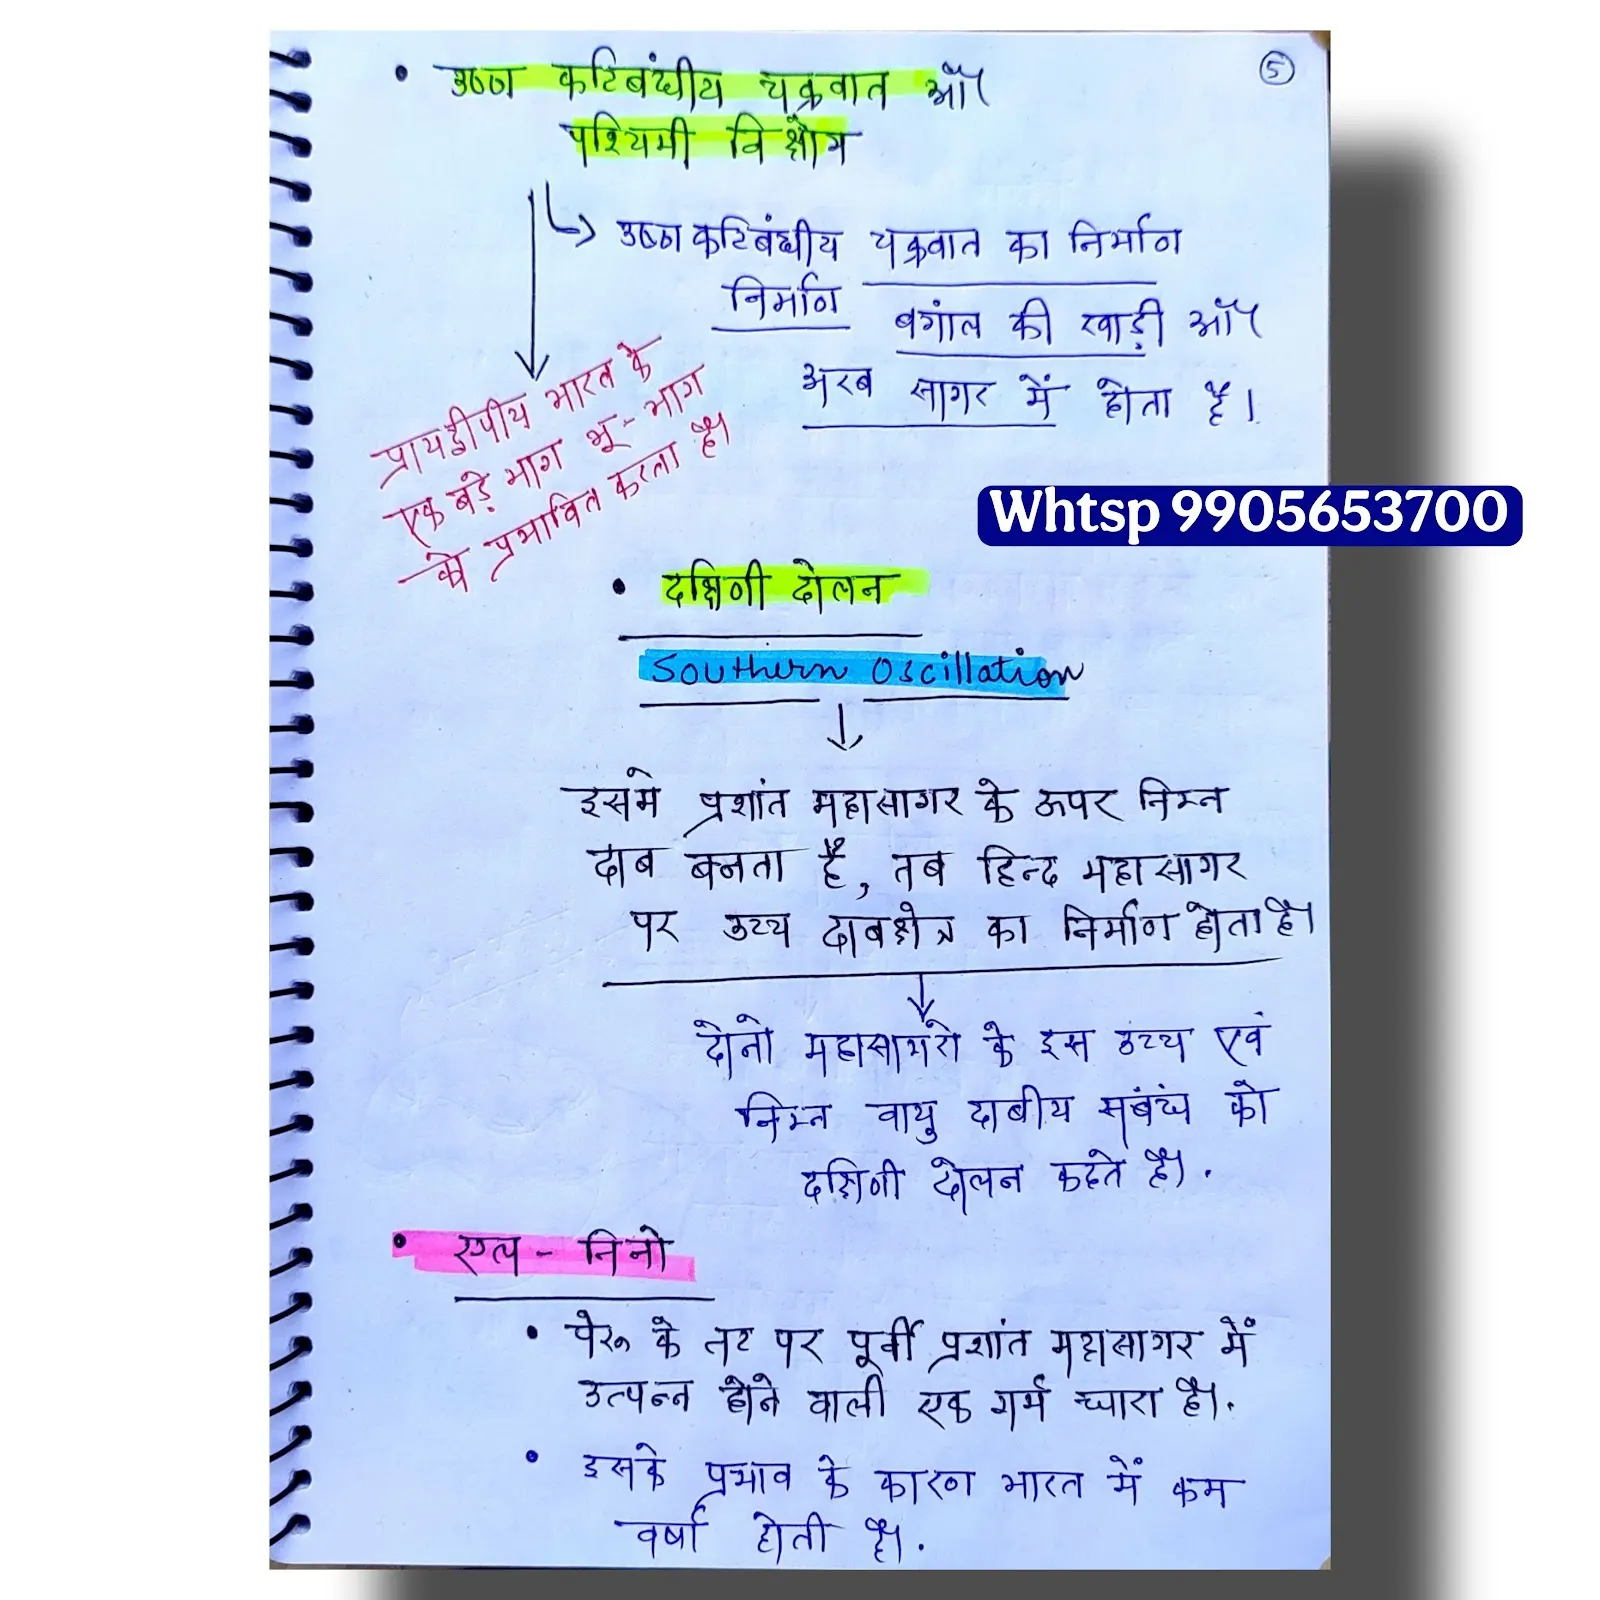 5
• उष्ण कटिबंधीय चक्रवात और
पश्चिमी विक्षोभ
उष्ण कटिबंधीय चक्रवात का निर्माण
निर्माण बगांल की खाड़ी और
अरब सागर में होता है।
प्रायद्वीपीय भारत के
एक बड़े भाग भू-भाग
को प्रभावित करता है।
Whtsp 9905653700
• दक्षिणी दोलन
Southern Oscillation
इसमे प्रशांत महासागर के ऊपर निम्न
दाब बनता है, तब हिन्द महासागर
पर उच्च दाबक्षेत्र का निर्माण होता है।
दोनो महासागरो के इस उच्च एवं
निम्न वायु दाबीय सबंध को
दक्षिणी दोलन कहते है।.
• एल - निनो
• पेरू के तट पर पूर्वी प्रशांत महासागर में
उत्पन्न होने वाली एक गर्म धारा है।.
• इसके प्रभाव के कारण भारत में कम
वर्षा होती है।.